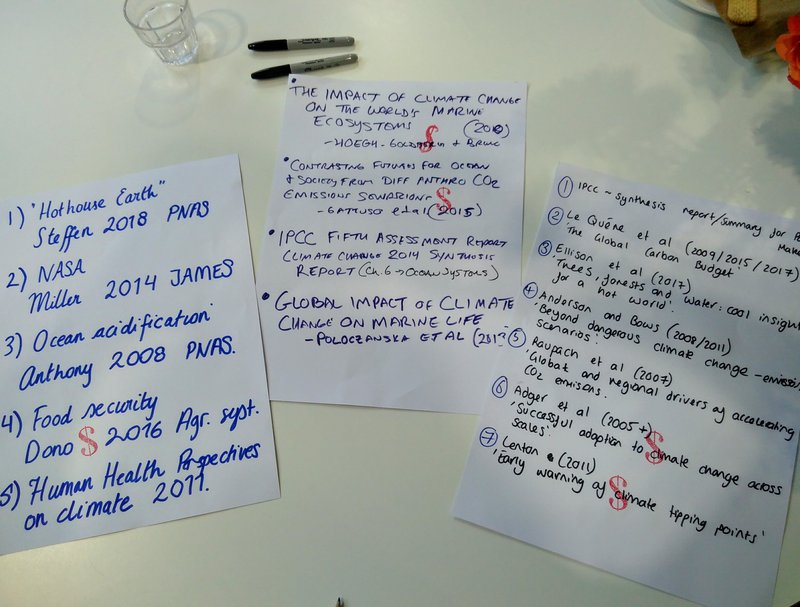 1) "Hothouse Earth"
Steffen 2018 PNAS
2) NASA
Miller 2014 JAMES
3) Ocean acidification
Anthony 2008 PNAS.
4) Food security
Dono $ 2016 Agr. syst.
5) Human Health Perspectives
on climate 2011.
• THE IMPACT OF CLIMATE CHANGE
ON THE WORLD'S MARINE
ECOSYSTEMS $ (2010)
- HOEGH-GULDBERG + BRUNO
• CONTRASTING FUTURES FOR OCEAN
+ SOCIETY FROM DIFF ANTHRO CO2
EMISSIONS $
- GATTUSO et al (2015)
• IPCC FIFTH ASSESSMENT REPORT
CLIMATE CHANGE 2014 SYNTHOSIS
REPORT (Ch. 6 → OCEAN SYSTEMS)
• GLOBAL IMPACT OF CLIMATE
CHANGE ON MARINE LIFE
- POLOCZANSKA ET AL (2013
① IPCC - synthesis report/summary for
Make
② Le Quéne et al (2009/2015/2017)
'The Global Carbon Budget'
③ Ellison et al (2017)
'Trees, forests and water: cool insight
for a hot world'.
④ Anderson and Bows (2008/2011)
'Beyond dangerous climate change - emission
scenarios'.
⑤ Raupach et al (2007)
'Global and regional drivers of accelerating
CO2 emisons.
⑥ Adger et al (2005+)
'Successful adaption to $ climate change across
scales'.
⑦ Lenton (2011)
'Early warning of $ climate tipping points'